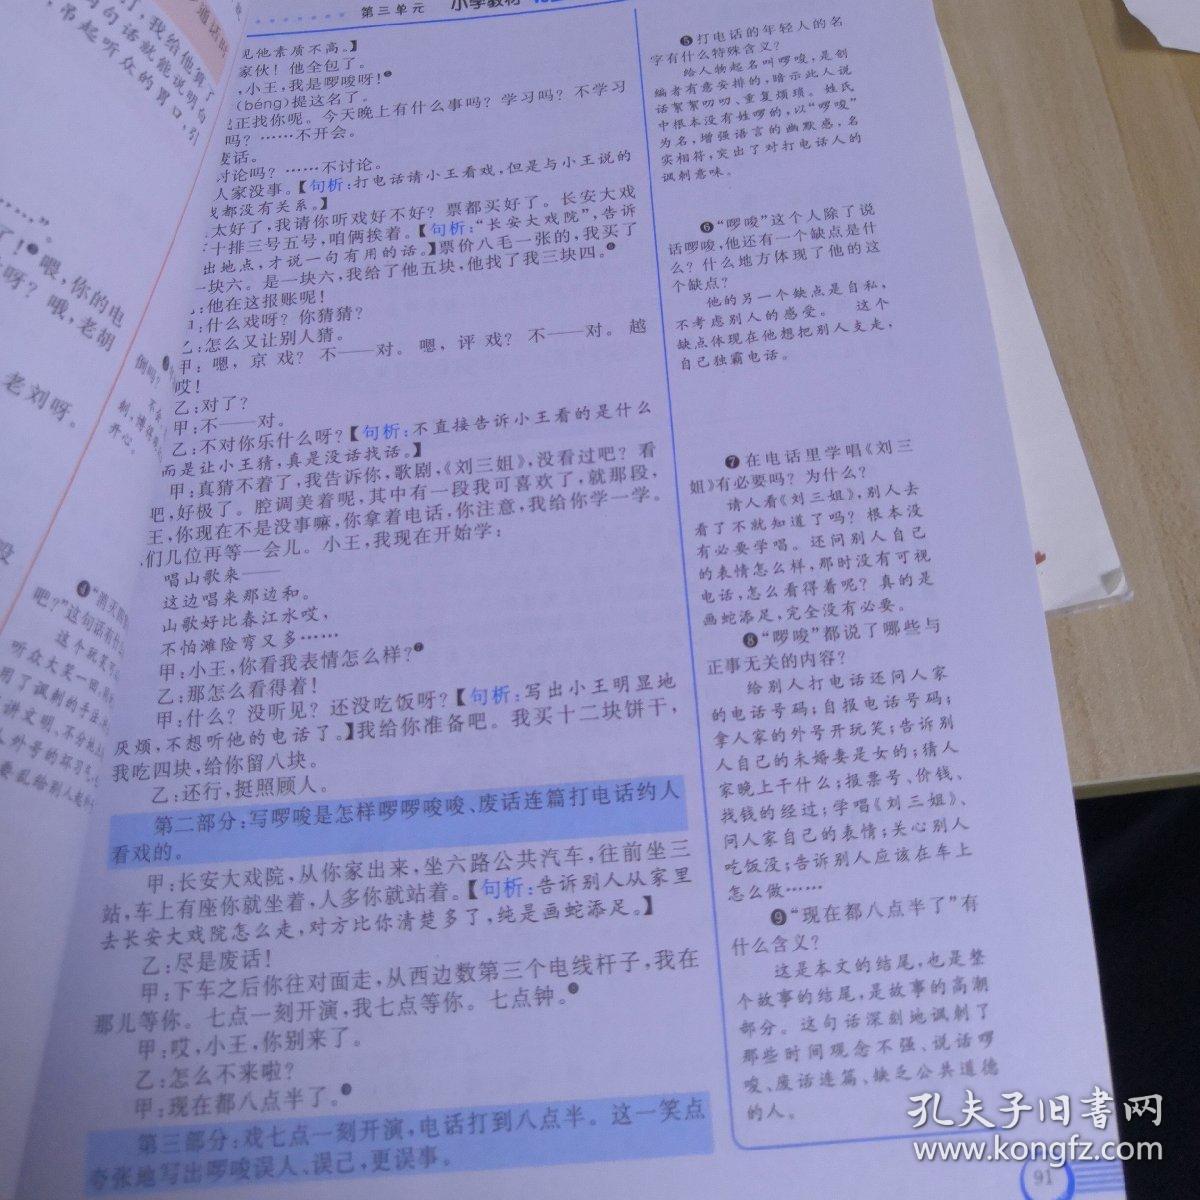 第三单元
小学教材
见他素质不高。】
家伙！他全包了。
，小王，我是啰唆呀！
(béng)提这名了。
正找你呢。今天晚上有什么事吗？学习吗？不学习
吗？……不开会。
废话。
讨论吗？……不讨论。
人家没事。【句析：打电话请小王看戏，但是与小王说的
都没有关系。】
太好了，我请你听戏好不好？票都买好了。长安大戏
十排三号五号，咱俩挨着。【句析：“长安大戏院”，告诉
出地点，才说一句有用的话。】票价八毛一张的，我买了
一块六。是一块六，我给了他五块，他找了我三块四。❻
：他在这报账呢！
甲：什么戏呀？你猜猜？
乙：怎么又让别人猜。
甲：嗯，京戏？不——对。嗯，评戏？不——对。越
哎！
乙：对了？
甲：不——对。
乙：不对你乐什么呀？【句析：不直接告诉小王看的是什么
而是让小王猜，真是没话找话。】
甲：真猜不着了，我告诉你，歌剧，《刘三姐》，没看过吧？看
吧，好极了。腔调美着呢，其中有一段我可喜欢了，就那段，
王，你现在不是没事嘛，你拿着电话，你注意，我给你学一学。
们几位再等一会儿。小王，我现在开始学：
唱山歌来——
这边唱来那边和。
山歌好比春江水哎，
不怕滩险弯又多……
甲：小王，你看我表情怎么样？❼
乙：那怎么看得着！
甲：什么？没听见？还没吃饭呀？【句析：写出小王明显地
厌烦，不想听他的电话了。】我给你准备吧。我买十二块饼干，
我吃四块，给你留八块。
乙：还行，挺照顾人。
第二部分：写啰唆是怎样啰啰唆唆、废话连篇打电话约人
看戏的。
甲：长安大戏院，从你家出来，坐六路公共汽车，往前坐三
站，车上有座你就坐着，人多你就站着。【句析：告诉别人从家里
去长安大戏院怎么走，对方比你清楚多了，纯是画蛇添足。】
乙：尽是废话！
甲：下车之后你往对面走，从西边数第三个电线杆子，我在
那儿等你。七点一刻开演，我七点等你。七点钟。
甲：哎，小王，你别来了。
乙：怎么不来啦？
甲：现在都八点半了。
第三部分：戏七点一刻开演，电话打到八点半。这一笑点
夸张地写出啰唆误人、误己，更误事。
❺打电话的年轻人的名
字有什么特殊含义？
给人物起名叫啰唆，是创
编者有意安排的，暗示此人说
话絮絮叨叨、重复烦琐。姓氏
中根本没有姓啰的，以“啰唆”
为名，增强语言的幽默感，名
实相符，突出了对打电话人的
讽刺意味。
❻“啰唆”这个人除了说
话啰唆，他还有一个缺点是什
么？什么地方体现了他的这
个缺点？
他的另一个缺点是自私，
不考虑别人的感受。 这个
缺点体现在他想把别人支走，
自己独霸电话。
❼在电话里学唱《刘三
姐》有必要吗？为什么？
请人看《刘三姐》，别人去
看了不就知道了吗？根本没
有必要学唱。还问别人自己
的表情怎么样，那时没有可视
电话，怎么看得着呢？真的是
画蛇添足，完全没有必要。
❽“啰唆”都说了哪些与
正事无关的内容？
给别人打电话还问人家
的电话号码；自报电话号码；
拿人家的外号开玩笑；告诉别
人自己的未婚妻是女的；猜人
家晚上干什么；报票号、价钱、
找钱的经过；学唱《刘三姐》、
问人家自己的表情；关心别人
吃饭没；告诉别人应该在车上
怎么做……
❾“现在都八点半了”有
什么含义？
这是本文的结尾，也是整
个故事的结尾，是故事的高潮
部分。这句话深刻地讽刺了
那些时间观念不强、说话啰
唆、废话连篇、缺乏公共道德
的人。
91
孔夫子旧书网
www.kongfz.com